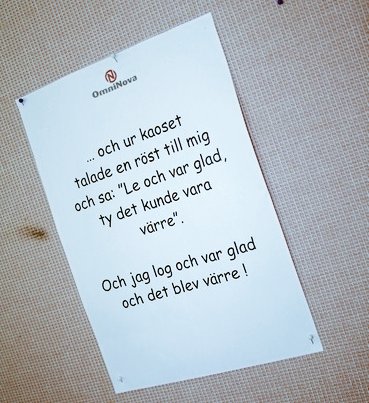 OmniNova
... och ur kaoset
talade en röst till mig
och sa: "Le och var glad,
ty det kunde vara
värre".
Och jag log och var glad
och det blev värre !